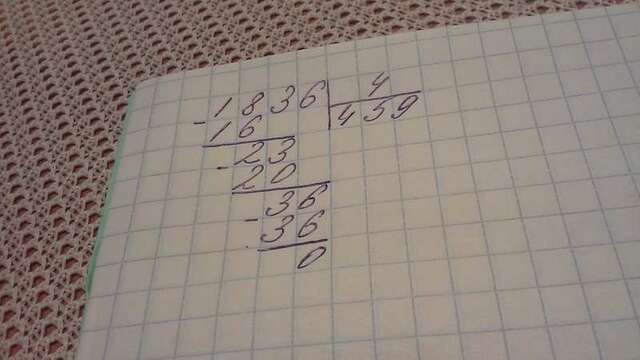 -1836 | 4
16 | 459
-23
20
-36
36
0